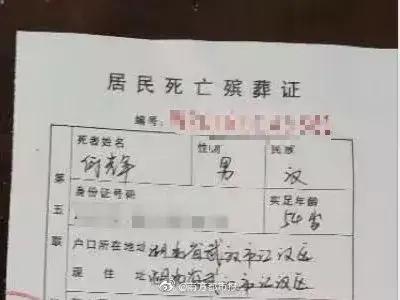 居民死亡殡葬证
编号:
死者姓名 性别 民族
何辉 男 汉
第五联
身份证号码 实足年龄
54岁
户口所在地 湖北省武汉市江汉区
现住址 湖北省武汉市江汉区
@南方都市报